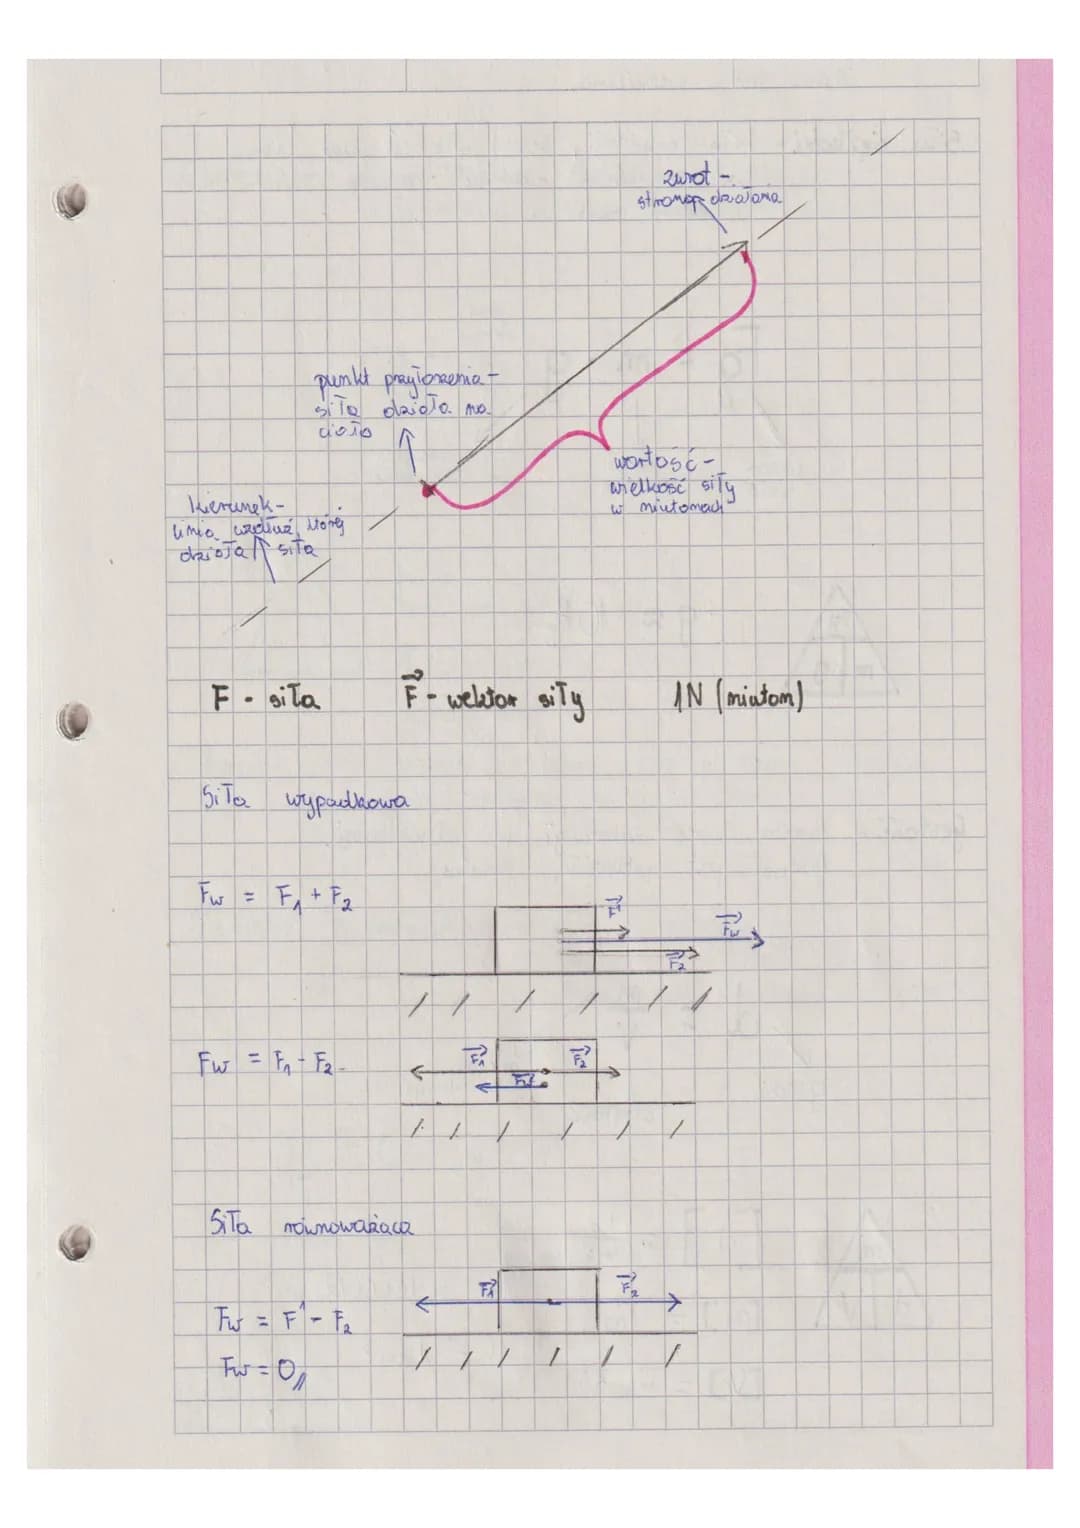 zwrot -
strona działania
punkt przyłożenia -
siła działa na
ciało
wartość -
wielkość siły
w niutonach
Kierunek -
linia wzdłuż której
działa siła
F - siła    F⃗ - wektor siły    1N (niuton)
Siła wypadkowa
Fw = F₁ + F₂
F⃗1
F⃗w
F⃗2
Fw = F₁ - F₂
F⃗1
F⃗2
F⃗w
Siła równoważąca
F⃗1
F⃗2
Fw = F1 - F₂
Fw = 0